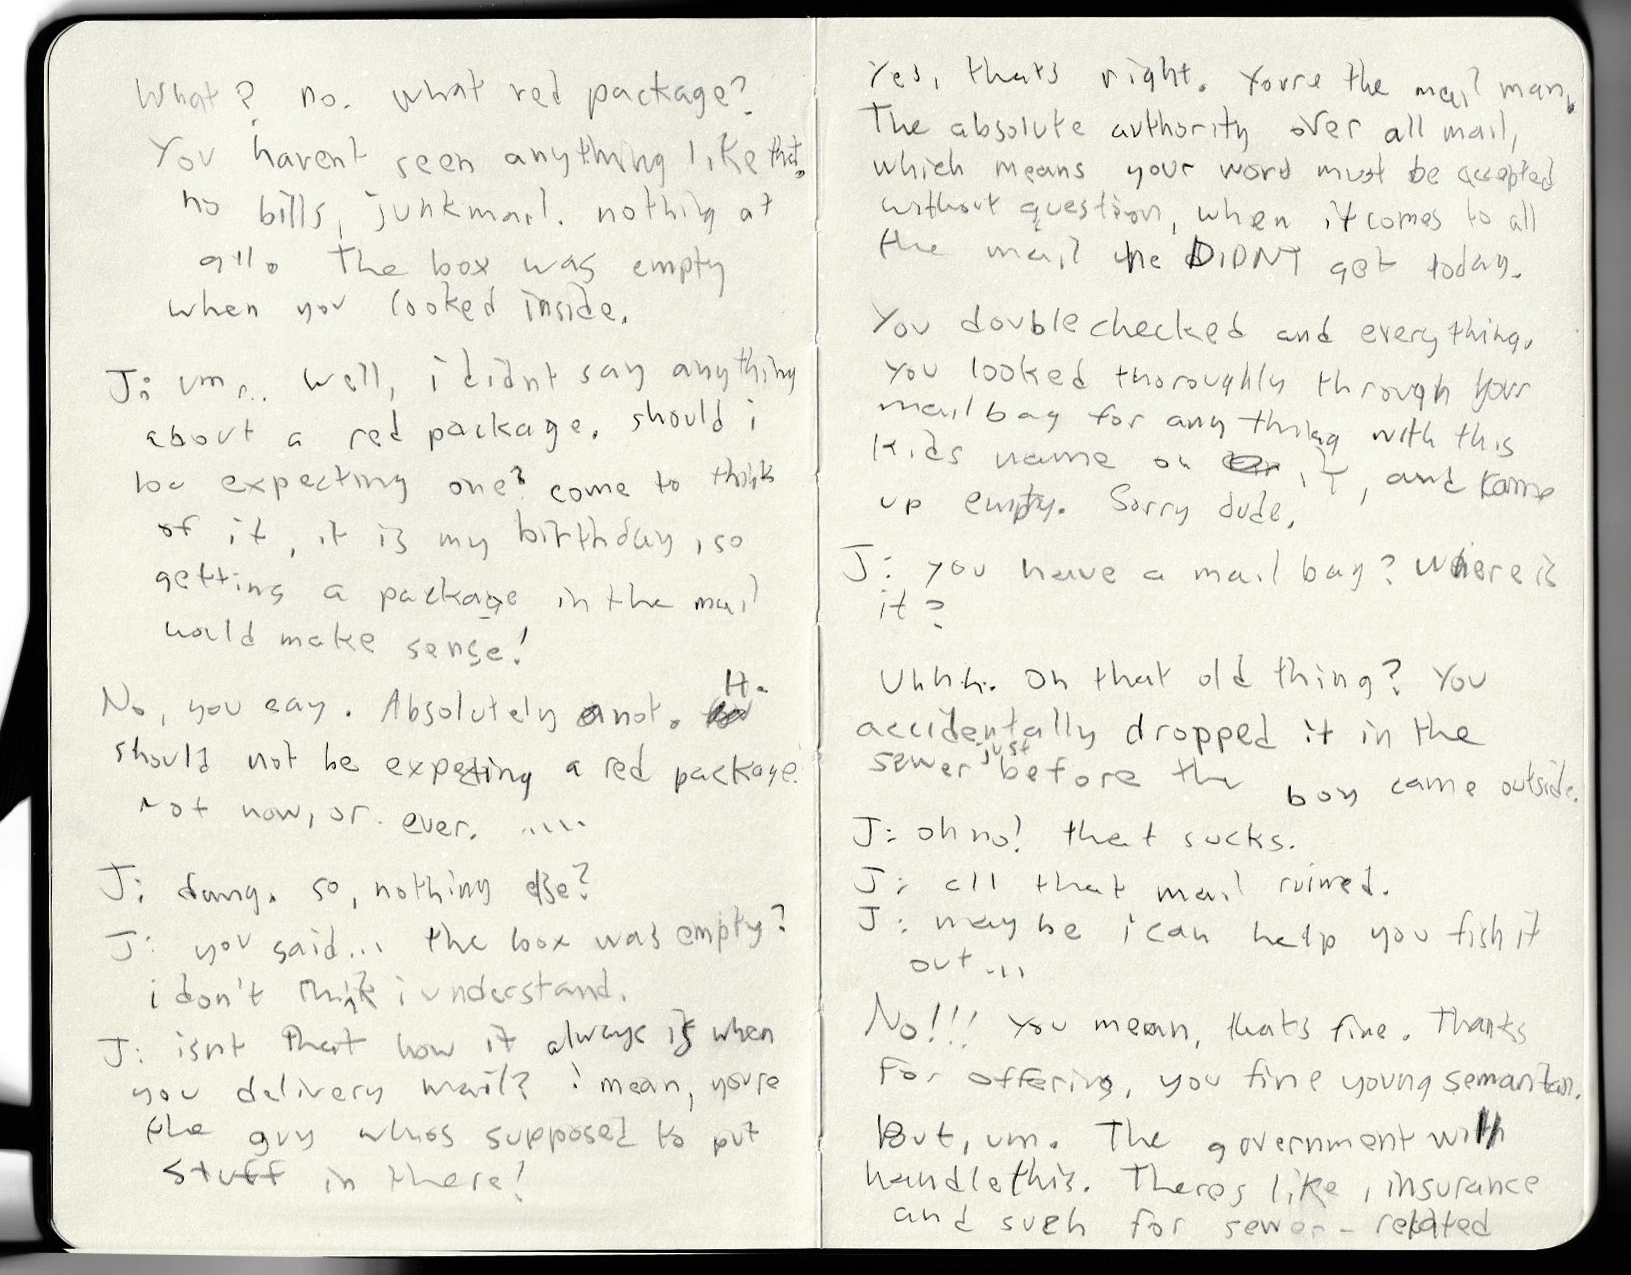 What? no. what red package?
You havent seen anything like that.
no bills, junkmail. nothing at
all. The box was empty
when you looked inside.
J: um... well, i didnt say anything
about a red package. should i
be expecting one? come to think
of it, it is my birthday, so
getting a package in the mail
would make sense!
No, you say. Absolutely not. H.
should not be expecting a red package.
not now, or ever. .....
J: dang. so, nothing else?
J: you said... the box was empty?
i don't think i understand.
J: isnt that how it always is when
you delivery mail? i mean, youre
the guy whos supposed to put
stuff in there!
Yes, thats right. Youre the mail man.
The absolute authority over all mail,
which means your word must be accepted
without question, when it comes to all
the mail he DIDNT get today.
You doublechecked and everything.
You looked thoroughly through your
mailbag for any thing with this
kids name on it, and kame
up empty. Sorry dude.
J: you have a mail bag? Where is
it?
Uhhh. Oh that old thing? You
accidentally dropped it in the
sewer just before the boy came outside.
J: oh no! that sucks.
J: all that mail ruined.
J: maybe i can help you fish it
out...
No!!! You mean, thats fine. Thanks
For offering, you fine young semaritan.
But, um. The government will
handle this. Theres like, insurance
and such for sewer-related